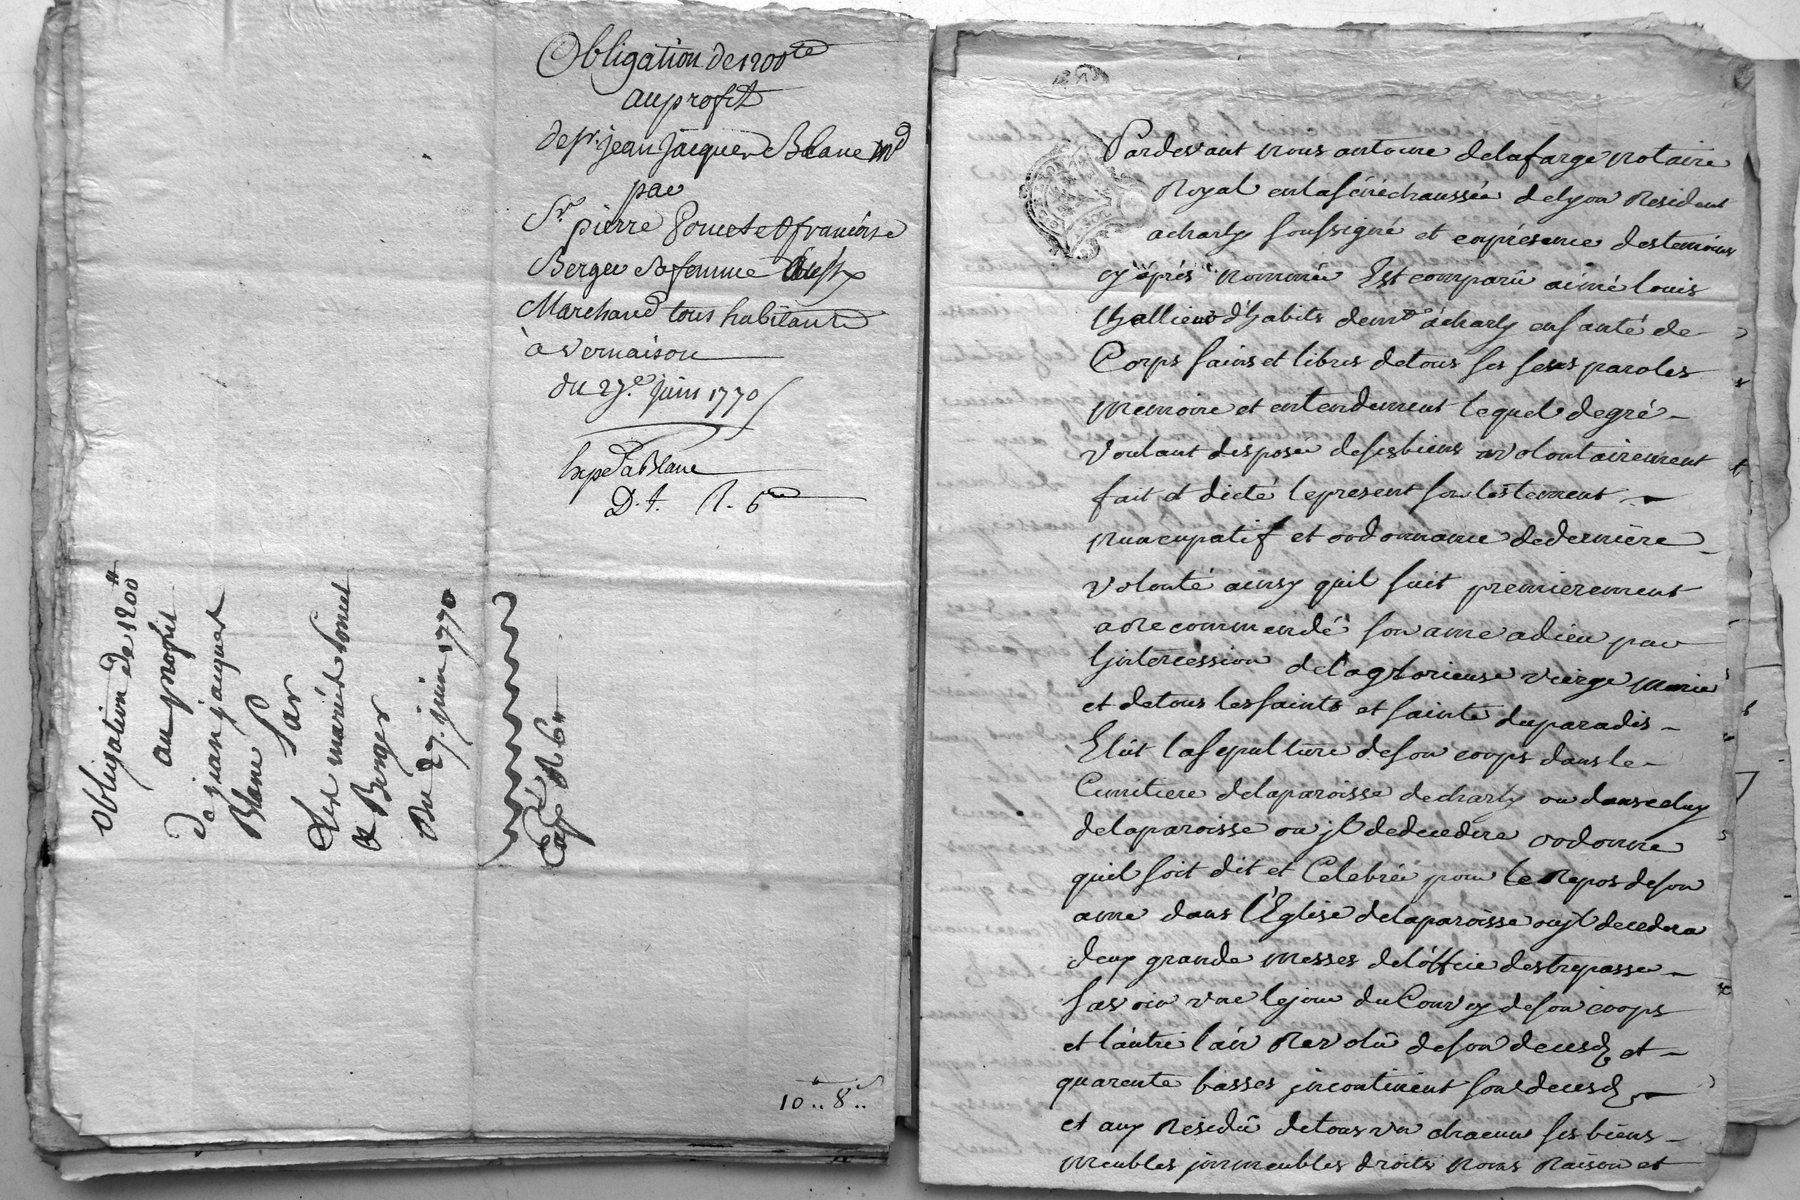 Obligation de 1200 ₶
au profit
de sr. jean Jacques Blanc md
par
Sr pierre Goucet & francoise
Berger sa femme aussy
Marchand tous habitants
à Vernaison
du 27e. juin 1770
Expe. a Blanc
D. t. R. 6
obligation de 1200 ₶
au profit
de jean jaques
Blanc Par
Les mariés
& Berger
Du 27. juin 1770
10 .. 8 ..
Pardevant nous antoine delafarge notaire
Royal en la sénéchaussée de lyon Resident
a charly soussigné et en présence des temoins
cy après nommés Est comparû aimé louis
d'habits demt. à charly en santé de
Corps sains et libres de tous ses sens paroles
memoire et entendement lequel de gré –
voulant disposer de ses biens a volontairement
fait et dicté le present son testement –
nuncupatif et ordonnance de derniere –
volonté ainsy quil suit premierement
a recommendé son ame a dieu par
Lintercession de la glorieuse vierge Marie
et de tous les saints et sainte du paradis –
Elût la sepulture de son corps dans le –
Cimitiere de la paroisse de charly ou dans celuy
de la paroisse ou jl decedera ordonne
quil soit dit et Celebré pour le Repos de son
ame dans l'Eglise de la paroisse ou jl decedera
deux grande messes de l'office des trepassé –
savoir une le jour du Convoy de son corps
et l'autre l'an Revolû de son deced et –
quarente basses jncontinent son deced –
et aux Residû de tous un chacun ses biens –
meubles jmmeubles droits noms Raison et